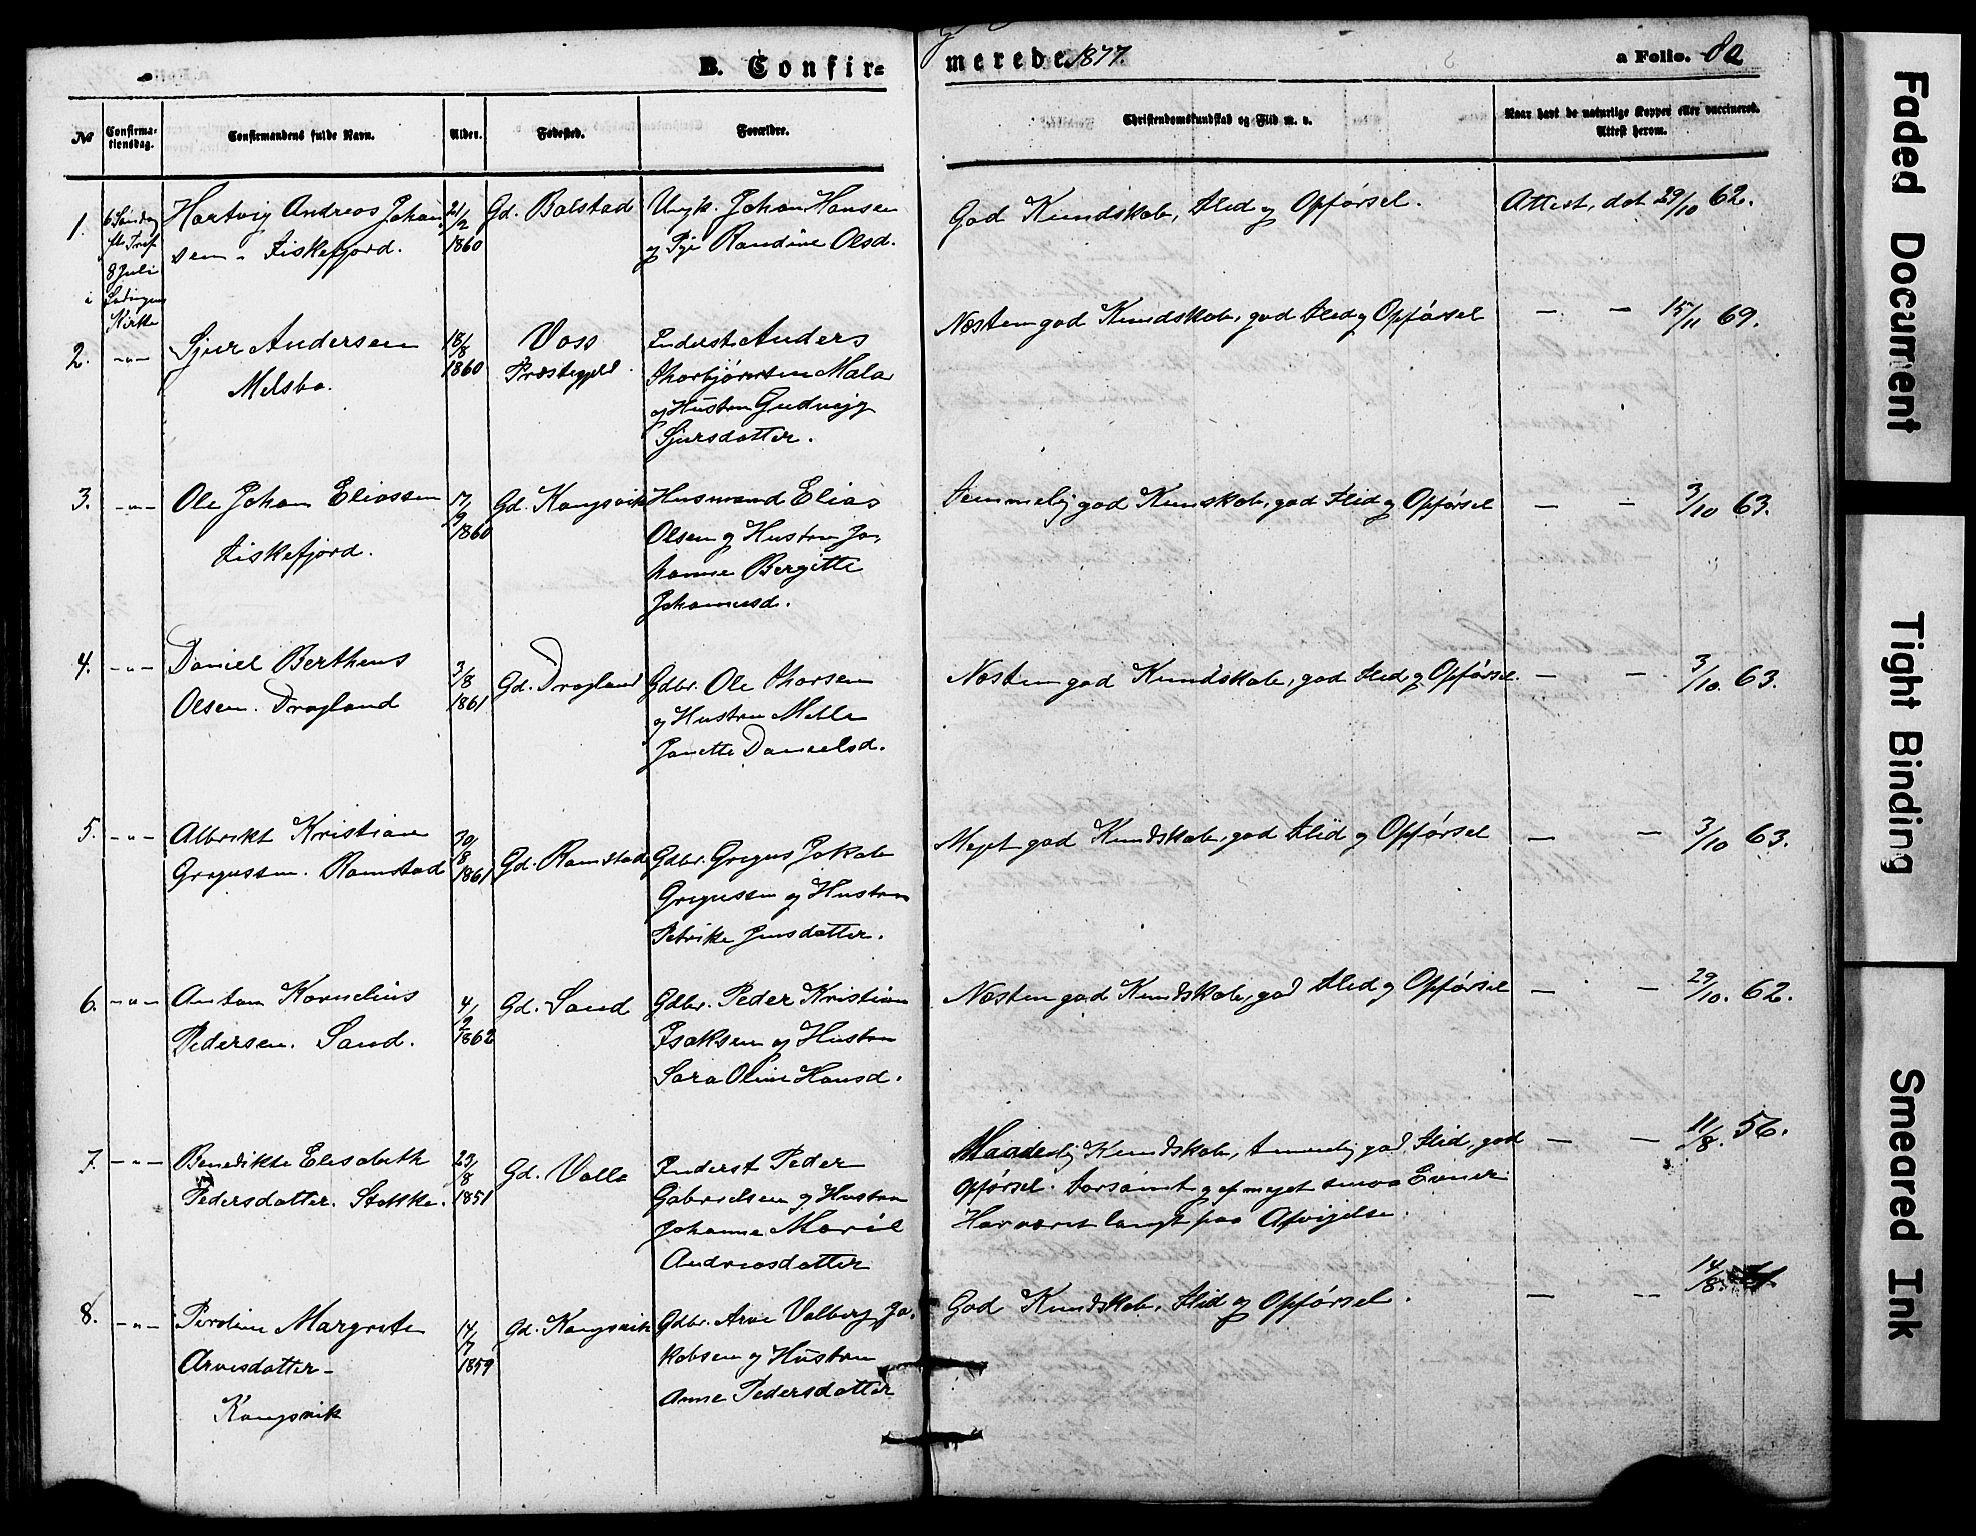 B. Confir-
merede 1877.
a Folio. 80
No
Confirma-
tionsdag.
Confirmandens fulde Navn.
Alder.
Fødested.
Forældre.
Christendomskundskab og Flid m. v.
Naar havt de naturlige Kopper eller vaccineret.
Attest herom.
1.
6 Søndag
fl Tref
8 Juli
i Lødingens
Kirke
Hartvig Andreas Johan-
sen - Fiskefjord.
21/2
1860
Gd. Balstad
Ungk. Johan Hansen
og Pige Randine Olsd.
God Kundskab, Flid og Opførsel.
Attest, dat 29/10 62.
2. -"-
Sjur Andersen
Melsbo.
18/8
1860
Voss
Præstegjeld.
Inderst Anders
Thorbjørnsen Mala
og Hustru Gudveig
Sjursdatter.
Næsten god Kundskab, god Flid og Opførsel
— — 15/11 69.
3. -"-
Ole Johan Eliassen
Fiskefjord.
17/9
1860
Gd. Kongsvik
Husmand Elias
Olsen og Hustru Jo-
hanne Bergitte
Johannesd.
Temmelig god Kunskab, god Flid og Opførsel
— — 3/10 63.
4. -"-
Daniel Bertheus
Olsen. Dragland
3/8
1861
Gd. Dragland
Gdbr. Ole Thorsen
og Hustru
Janette Danielsd.
Næsten god Kundskab, god Flid og Opførsel.
— — 3/10. 63.
5. -"-
Albrikt Kristian
Gregussen. Ramstad
30/8
1861
Gd. Ramstad
Gdbr. Gregus Jakob
Gregussen og Hustru
Petrike Jensdatter.
Meget god Kundskab, god Flid og Opførsel
— — 3/10 63.
6. -"-
Anton Kornelius
Pedersen. Sand.
4/2
1862
Gd. Sand
Gdbr. Peder Kristian
Isaksen og Hustru
Sara Oline Hansd.
Næsten god Kundskab, god Flid og Opførsel
— — 29/10. 62.
7. -"-
Benedikte Elisabeth
Pedersdatter. Stokke.
23/8
1851
Gd. Valle
Inderst Peder
Gabrielsen og Hustru
Johanne Marie
Andreasdatter
Maadelig Kundskab, temmelig god Flid, god
Opførsel. Forsømt og af meget smaa Evner
Har været langt paa Afvigelse.
— — 11/8. 56.
8. -"-
Peroline Margrete
Arvesdatter -
Kongsvik
14/7
1859
Gd. Kongsvik
Gdbr. Arve Valberg Ja-
kobsen og Hustru
Anne Pedersdatter
God Kundskab, Flid og Opførsel.
— — 14/8.
Faded Document
Tight Binding
Smeared Ink